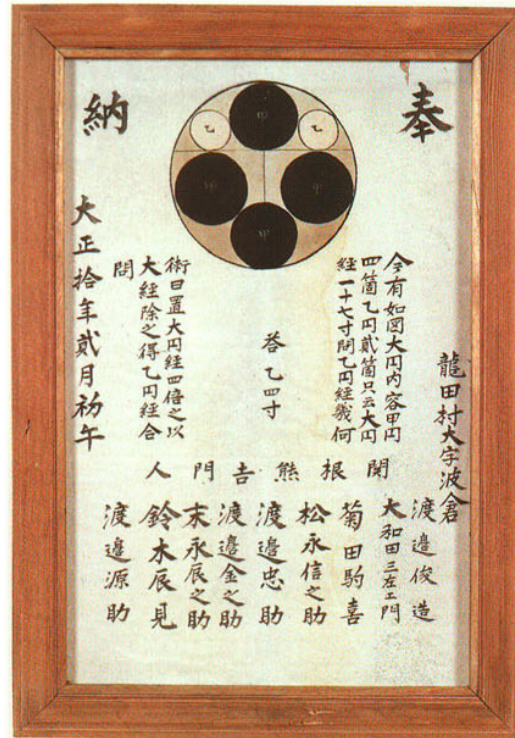 奉納
甲
乙
乙
甲
甲
甲
龍田村大字波倉
今有如図大円内容甲円
四箇乙円貮箇只云大円
経一十七寸問乙円経幾何
答乙四寸
術曰置大円経四倍之以
大経除之得乙円経合
問
大正拾年貮月初午
関根熊吉門人
渡邉俊造
大和田三左エ門
菊田駒喜
松永信之助
渡邉忠助
渡邉金之助
末永辰之助
鈴木辰見
渡邉源助